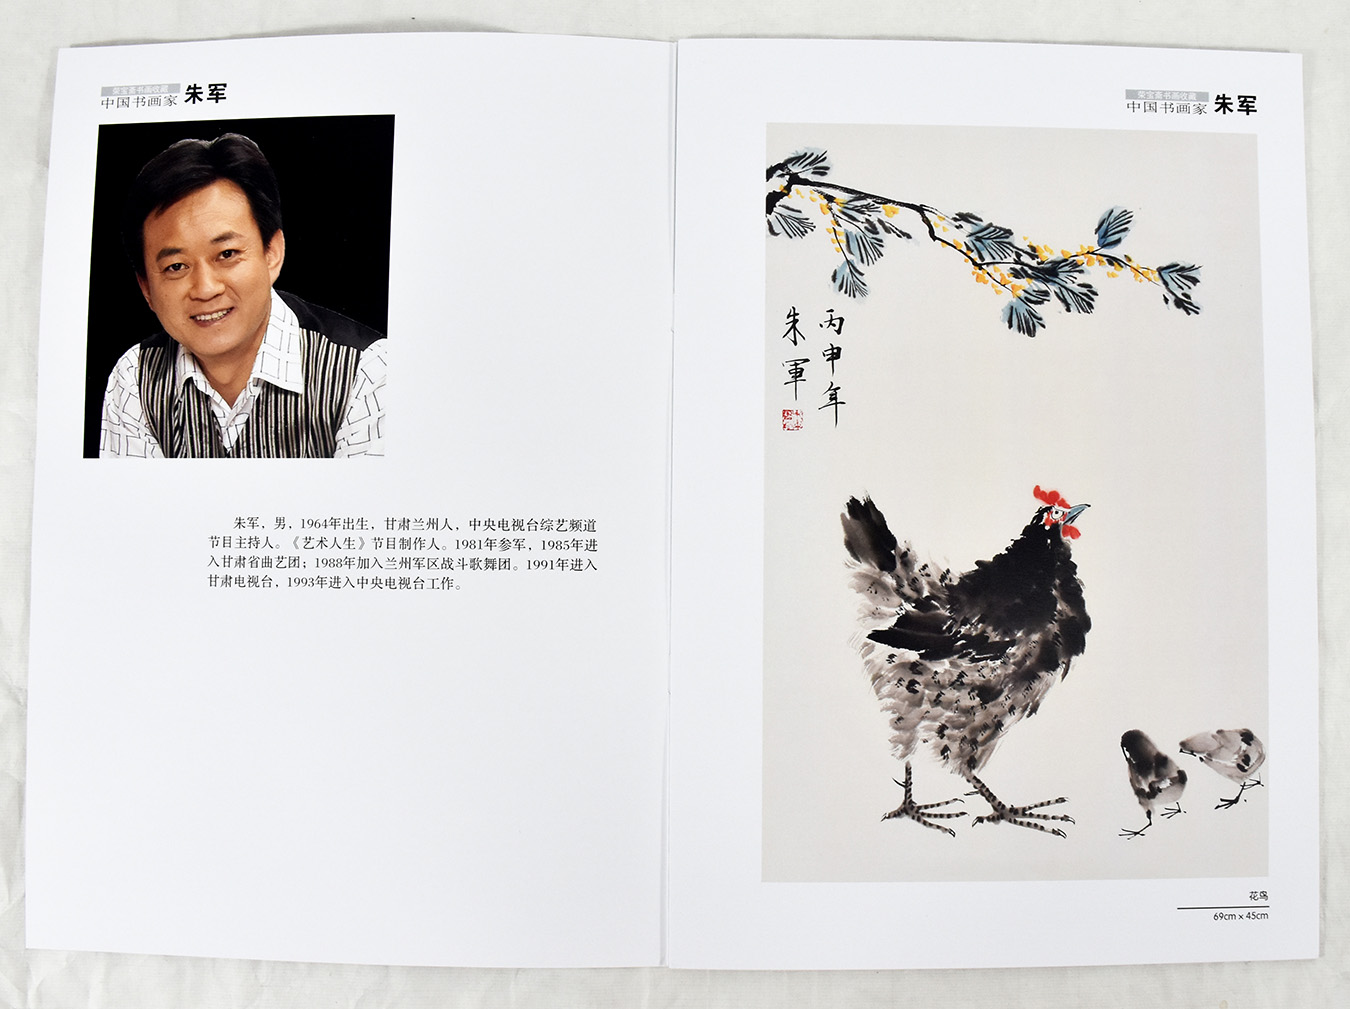 荣宝斋书画收藏
中国书画家 朱军
朱军，男，1964年出生，甘肃兰州人，中央电视台综艺频道
节目主持人。《艺术人生》节目制作人。1981年参军，1985年进
入甘肃省曲艺团；1988年加入兰州军区战斗歌舞团。1991年进入
甘肃电视台，1993年进入中央电视台工作。
荣宝斋书画收藏
中国书画家 朱军
丙申年
朱軍
花鸟
69cm x 45cm